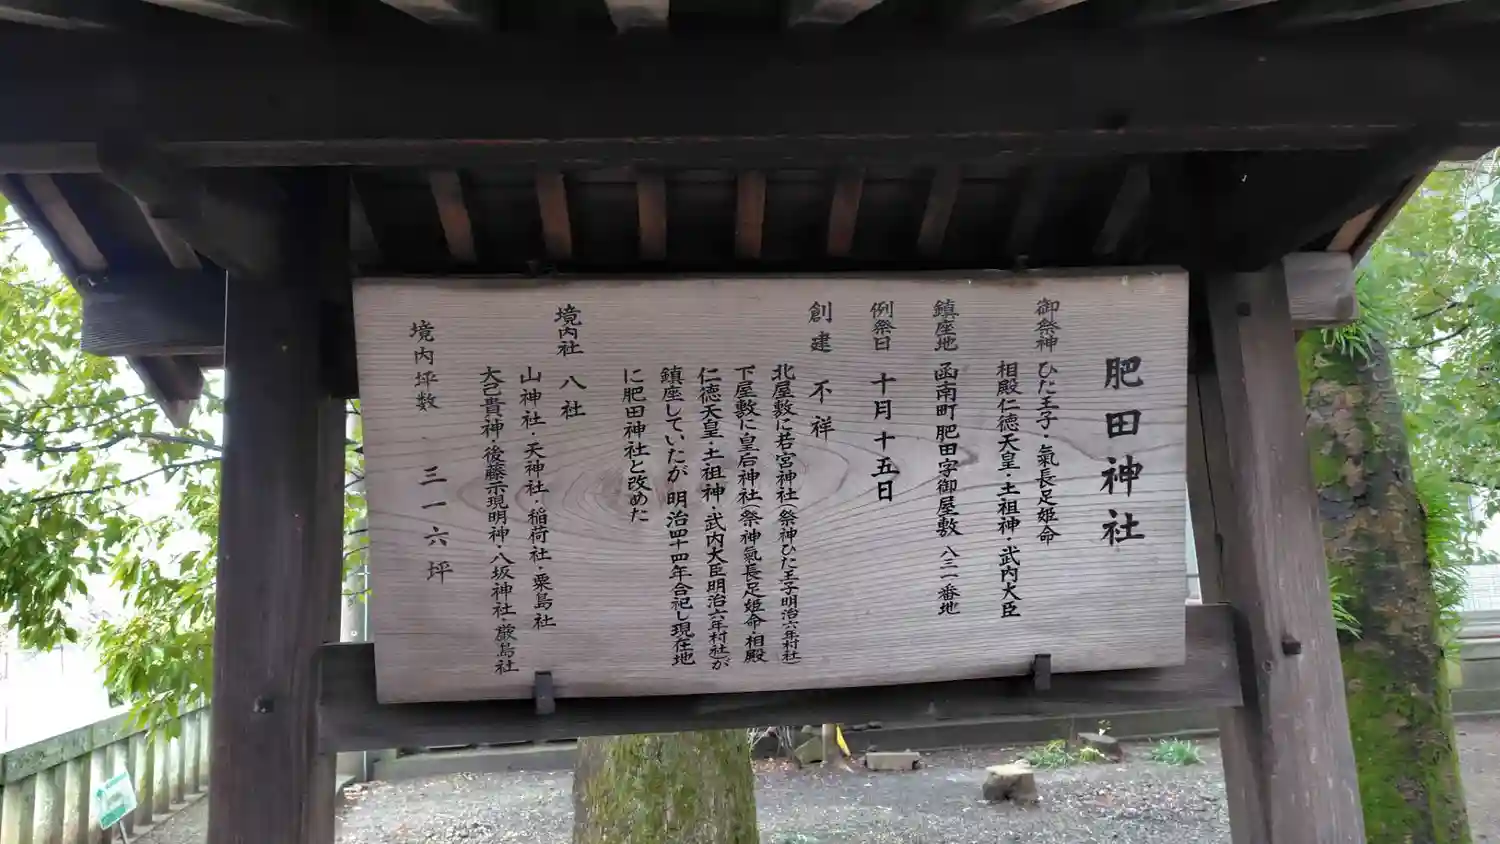 肥田神社
御祭神 ひた王子・氣長足姫命
相殿仁徳天皇・土祖神・武内大臣
鎮座地 函南町肥田字御屋敷 八三一番地
例祭日 十月十五日
創建 不祥
北屋敷に若宮神社(祭神ひた王子明治六年村社)
下屋敷に皇后神社(祭神氣長足姫命・相殿
仁徳天皇・土祖神・武内大臣明治六年村社)が
鎮座していたが明治四十四年合祀し現在地
に肥田神社と改めた
境内社 八社
山神社・天神社・稲荷社・粟島社
大己貴神・後藤示現明神・八坂神社・厳島社
境内坪数 三一六坪